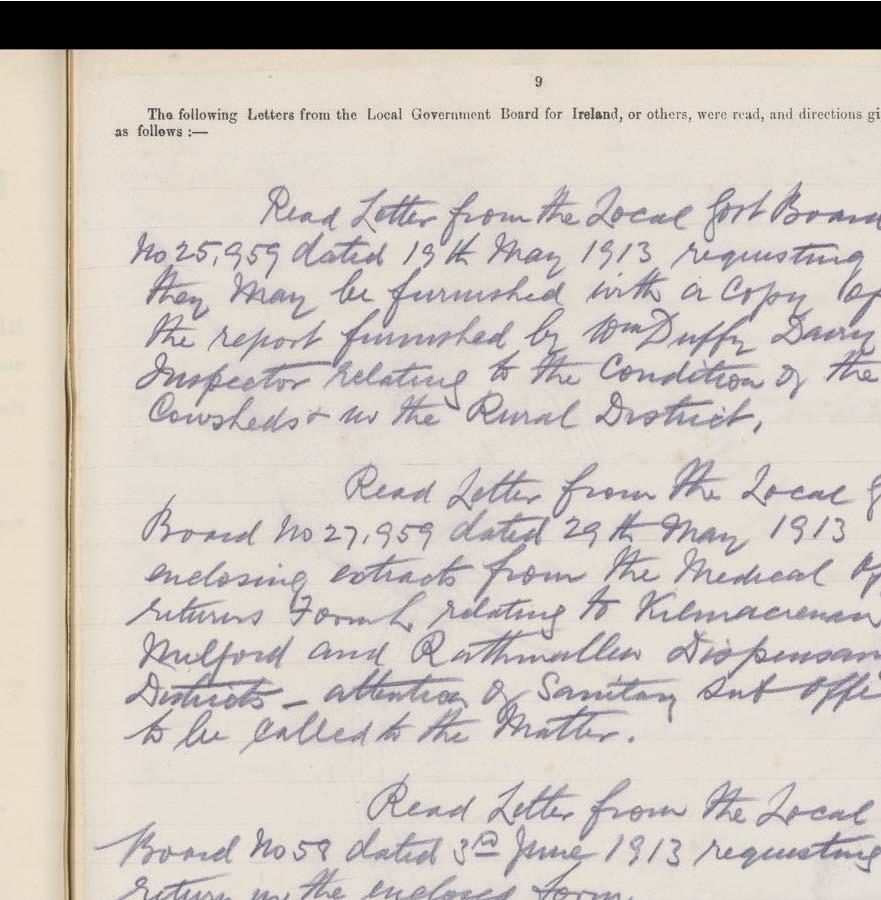 9
The following Letters from the Local Government Board for Ireland, or others, were read, and directions gi
as follows :—
Read Letter from the Local Govt Board
No 25,959 dated 19th May 1913 requesting
they may be furnished with a Copy of
the report furnished by Wm Duffy Dairy
Inspector relating to the Condition of the
Cowsheds & in the Rural District.
Read Letter from the Local G
Board No 27,959 dated 29th May 1913
enclosing extracts from the Medical Of
returns Form relating to Kilmacrenan
Milford and Rathmullen Dispensar
Districts – attention of Sanitary Sub Offi
to be Called to the Matter.
Read Letter from the Local
Board No 59 dated 3rd June 1913 requesting
return in the enclosed form.